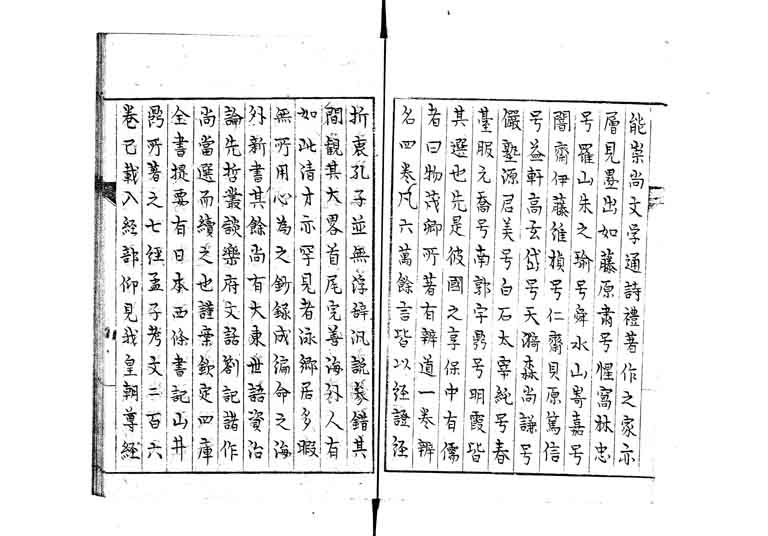 能崇尚文学通詩禮著作之家亦
層見疊出如藤原肅号惺窩林忠
号羅山朱之瑜号舜水山嵜嘉号
闇齋伊藤維楨号仁齋貝原篤信
号益軒高玄岱号天漪森尚謙号
儼塾源君美号白石太宰純号春
臺服元喬号南郭宇鼎号明霞皆
其選也先是彼國之享保中有儒
者曰物茂卿所著有辨道一卷辨
名四卷凡六萬餘言皆以經證經
折衷孔子並無浮辞汎說參錯其
間觀其大畧首尾完善海外人有
如此清才亦罕見者泳鄉居多暇
無所用心為之鈔録成編命之海
外新書其餘尚有大東世語資治
論先哲叢談樂府文話劄記諸作
尚當選而續之也謹案欽定四庫
全書提要有日本西條書記山井
鼎所著之七經孟子考文二百六
卷已載入經部仰見我皇朝尊經